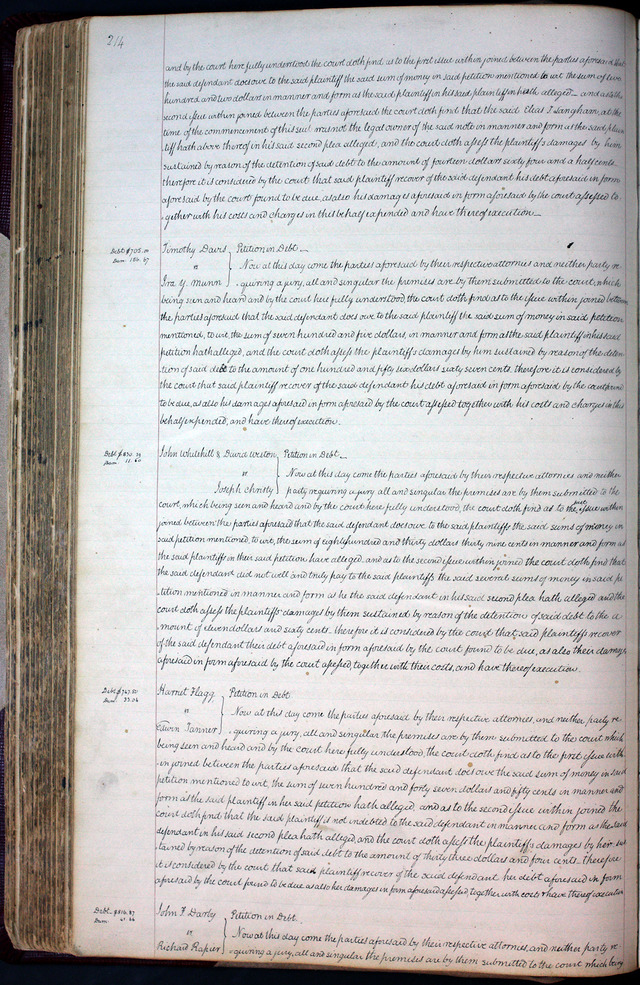 214
and by the court here fully understood the court doth find as to the first issue within joined between the parties aforesaid that
the said defendant does owe to the said plaintiff the said sum of money in said petition mentioned to wit the sum of two
hundred and two dollars in manner and form as the said plaintiff in his said plaintiff hath alleged and as to the
second issue within joined between the parties aforesaid the court doth find that the said Elias T Langham, at the
time of the commencement of this suit was not the legal owner of the said note in manner and form as the said plain
tiff hath above thereof in his said second plea alleged, and the court doth assess the plaintiff's damages by him
sustained by reason of the detention of said debt to the amount of fourteen dollars sixty four and a half cents.
therefore it is considered by the court that said plaintiff recover of the said defendant his debt aforesaid in form
aforesaid by the court found to be due, as also his damages aforesaid in form aforesaid by the court assessed to
gether with his costs and charges in this behalf expended and have thereof execution
Debt $705.00
Dam 156.67
Timothy Davis } Petition in Debt
vs
Now at this day come the parties aforesaid by their respective attornies and neither party re
Ira Y. Munn } quiring a jury, all and singular the premises are by them submitted to the court, which
being seen and heard and by the court here fully understood, the court doth find as to the issue within joined between
the parties aforesaid that the said defendant does owe to the said plaintiff the said sum of money in said petition
mentioned, to wit, the sum of seven hundred and five dollars, in manner and form as the said plaintiff in his said
petition hath alleged, and the court doth assess the plaintiff's damages by him sustained by reason of the deten
tion of said debt to the amount of one hundred and fifty six dollars sixty seven cents. therefore it is considered by
the court that said plaintiff recover of the said defendant his debt aforesaid in form aforesaid by the court found
to be due, as also his damages aforesaid in form aforesaid by the court assessed together with his costs and charges in this
behalf expended, and have thereof execution.
Debt $830.39
Dam 11.60
John Whitehill & David Weston } Petition in Debt
vs
Now at this day come the parties aforesaid by their respective attornies and neither
Joseph Christy } party requiring a jury all and singular the premises are by them submitted to the
court, which being seen and heard and by the court here fully understood, the court doth find as to the first issue within
joined between the parties aforesaid that the said defendant does owe to the said plaintiffs the said sums of money in
said petition mentioned, to wit, the sum of eight hundred and thirty dollars thirty nine cents in manner and form as
the said plaintiffs in their said petition have alleged, and as to the second issue within joined the court doth find that
the said defendant did not well and truly pay to the said plaintiffs the said several sums of money in said pe
tition mentioned in manner and form as he the said defendant in his said second plea hath alleged and the
court doth assess the plaintiffs damages by them sustained by reason of the detention of said debt to the a
mount of eleven dollars and sixty cents. therefore it is considered by the court that said plaintiffs recover
of the said defendant their debt aforesaid in form aforesaid by the court found to be due, as also their damages
aforesaid in form aforesaid by the court assessed, together with their costs, and have thereof execution.
Debt $747.50
Dam 33.04
Harriet Flagg } Petition in Debt.
vs
Now at this day come the parties aforesaid by their respective attornies, and neither party re
Edwin Tanner } quiring a jury, all and singular the premises are by them submitted to the court which
being seen and heard and by the court here fully understood, the court doth find as to the first issue with
in joined between the parties aforesaid that the said defendant does owe the said sum of money in said
petition mentioned to wit, the sum of seven hundred and forty seven dollars and fifty cents in manner and
form as the said plaintiff in her said petition hath alleged, and as to the second issue within joined the
court doth find that the said plaintiff is not indebted to the said defendant in manner and form as the said
defendant in his said second plea hath alleged, and the court doth assess the plaintiff's damages by her sus
tained by reason of the detention of said debt to the amount of thirty three dollars and four cents. Therefore
it is considered by the court that said plaintiff recover of the said defendant her debt aforesaid in form
aforesaid by the court found to be due as also her damages in form aforesaid assessed, together with costs & have thereof execution
Debt $816.87
Dam.
John F Darby } Petition in Debt.
vs
Now at this day come the parties aforesaid by their respective attornies, and neither party re
Richard Rapier } quiring a jury, all and singular the premises are by them submitted to the court which being